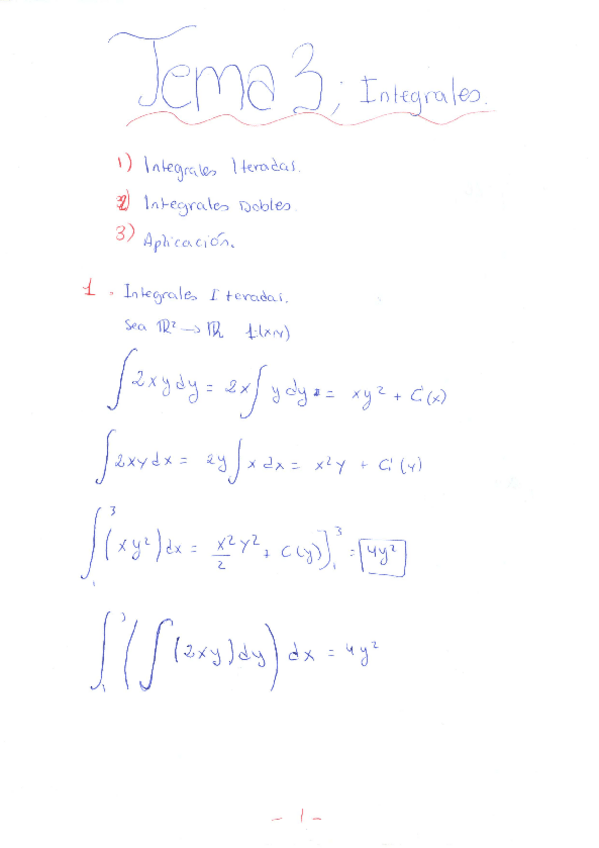 Tema 3; Integrales.
1) Integrales Iteradas.
2) Integrales Dobles.
3) Aplicación.
1. Integrales Iteradas.
Sea ℝ² → ℝ f(x,y)
∫ 2xy dy = 2x ∫ y dy = xy² + C(x)
∫ 2xy dx = 2y ∫ x dx = x²y + C(y)
∫₁³ (xy²) dx = x²/2 y² + C(y) ]₁³ = 4y²
∫₁³ ( ∫ (2xy) dy ) dx = 4y²
- 1 -